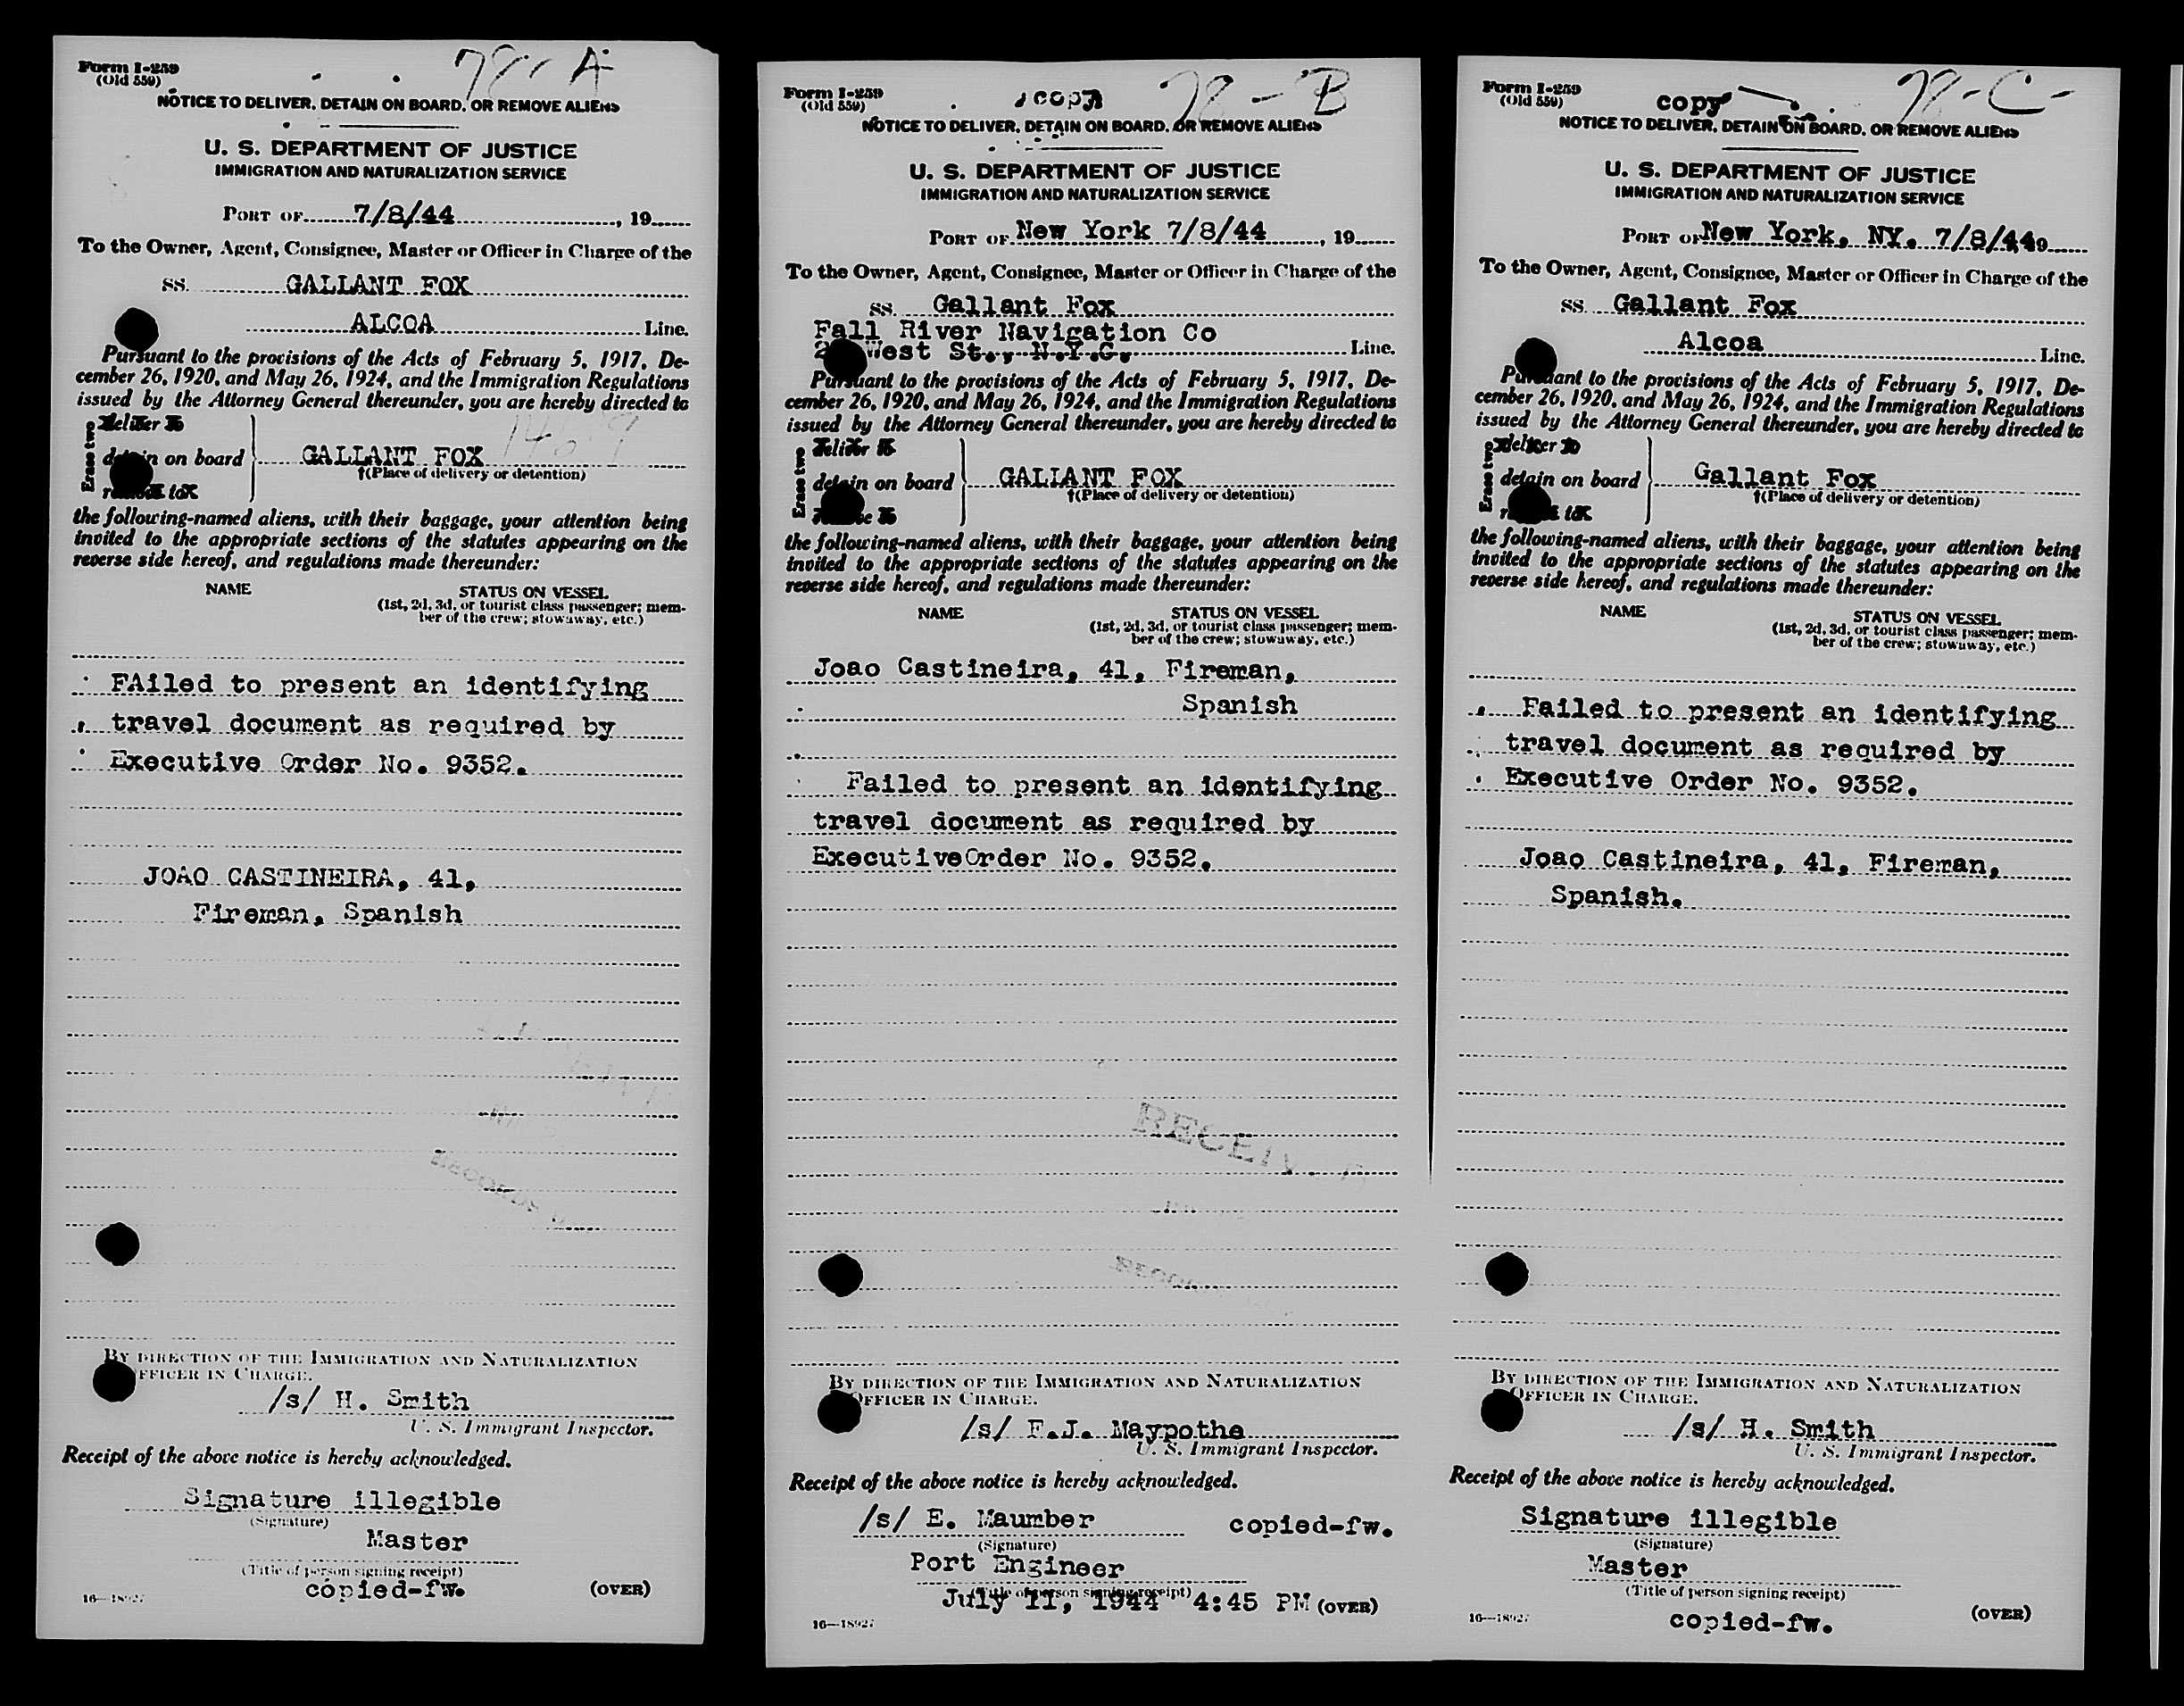 Form I-259
(Old 559)
78-A
NOTICE TO DELIVER, DETAIN ON BOARD, OR REMOVE ALIENS
U. S. DEPARTMENT OF JUSTICE
IMMIGRATION AND NATURALIZATION SERVICE
PORT OF 7/8/44, 19
To the Owner, Agent, Consignee, Master or Officer in Charge of the
SS. GALLANT FOX
ALCOA Line.
Pursuant to the provisions of the Acts of February 5, 1917, De-
cember 26, 1920, and May 26, 1924, and the Immigration Regulations
issued by the Attorney General thereunder, you are hereby directed to
Erase two
deliver to
detain on board GALLANT FOX
†(Place of delivery or detention)
the following-named aliens, with their baggage, your attention being
invited to the appropriate sections of the statutes appearing on the
reverse side hereof, and regulations made thereunder:
NAME STATUS ON VESSEL
(1st, 2d, 3d, or tourist class passenger; mem-
ber of the crew; stowaway, etc.)
FAiled to present an identifying
travel document as required by
Executive Order No. 9352.
JOAO CASTINEIRA, 41,
Fireman, Spanish
BY DIRECTION OF THE IMMIGRATION AND NATURALIZATION
OFFICER IN CHARGE.
/s/ H. Smith
U. S. Immigrant Inspector.
Receipt of the above notice is hereby acknowledged.
Signature illegible
(Signature)
Master
(Title of person signing receipt)
copied-fw.
16—18927
(OVER)
Form I-259
(Old 559)
copy
78-B
NOTICE TO DELIVER, DETAIN ON BOARD, OR REMOVE ALIENS
U. S. DEPARTMENT OF JUSTICE
IMMIGRATION AND NATURALIZATION SERVICE
PORT OF New York 7/8/44, 19
To the Owner, Agent, Consignee, Master or Officer in Charge of the
SS. Gallant Fox
Fall River Navigation Co
West St., N.Y.C. Line.
Pursuant to the provisions of the Acts of February 5, 1917, De-
cember 26, 1920, and May 26, 1924, and the Immigration Regulations
issued by the Attorney General thereunder, you are hereby directed to
Erase two
deliver to
detain on board GALLANT FOX
†(Place of delivery or detention)
the following-named aliens, with their baggage, your attention being
invited to the appropriate sections of the statutes appearing on the
reverse side hereof, and regulations made thereunder:
NAME STATUS ON VESSEL
(1st, 2d, 3d, or tourist class passenger; mem-
ber of the crew; stowaway, etc.)
Joao Castineira, 41, Fireman,
Spanish
Failed to present an identifying
travel document as required by
ExecutiveOrder No. 9352.
BY DIRECTION OF THE IMMIGRATION AND NATURALIZATION
OFFICER IN CHARGE.
/s/ F.J. Maypothe
U. S. Immigrant Inspector.
Receipt of the above notice is hereby acknowledged.
/s/ E. Maumber copied-fw.
(Signature)
Port Engineer
(Title of person signing receipt)
July 11, 1944 4:45 PM (OVER)
16—18927
Form I-259
(Old 559)
copy
78-C-
NOTICE TO DELIVER, DETAIN ON BOARD, OR REMOVE ALIENS
U. S. DEPARTMENT OF JUSTICE
IMMIGRATION AND NATURALIZATION SERVICE
PORT OF New York, NY. 7/8/44 19
To the Owner, Agent, Consignee, Master or Officer in Charge of the
SS. Gallant Fox
Alcoa Line.
Pursuant to the provisions of the Acts of February 5, 1917, De-
cember 26, 1920, and May 26, 1924, and the Immigration Regulations
issued by the Attorney General thereunder, you are hereby directed to
Erase two
deliver to
detain on board Gallant Fox
†(Place of delivery or detention)
the following-named aliens, with their baggage, your attention being
invited to the appropriate sections of the statutes appearing on the
reverse side hereof, and regulations made thereunder:
NAME STATUS ON VESSEL
(1st, 2d, 3d, or tourist class passenger; mem-
ber of the crew; stowaway, etc.)
Failed to present an identifying
travel document as required by
Executive Order No. 9352.
Joao Castineira, 41, Fireman,
Spanish.
BY DIRECTION OF THE IMMIGRATION AND NATURALIZATION
OFFICER IN CHARGE.
/s/ H. Smith
U. S. Immigrant Inspector.
Receipt of the above notice is hereby acknowledged.
Signature illegible
(Signature)
Master
(Title of person signing receipt)
copied-fw.
16—18927
(OVER)